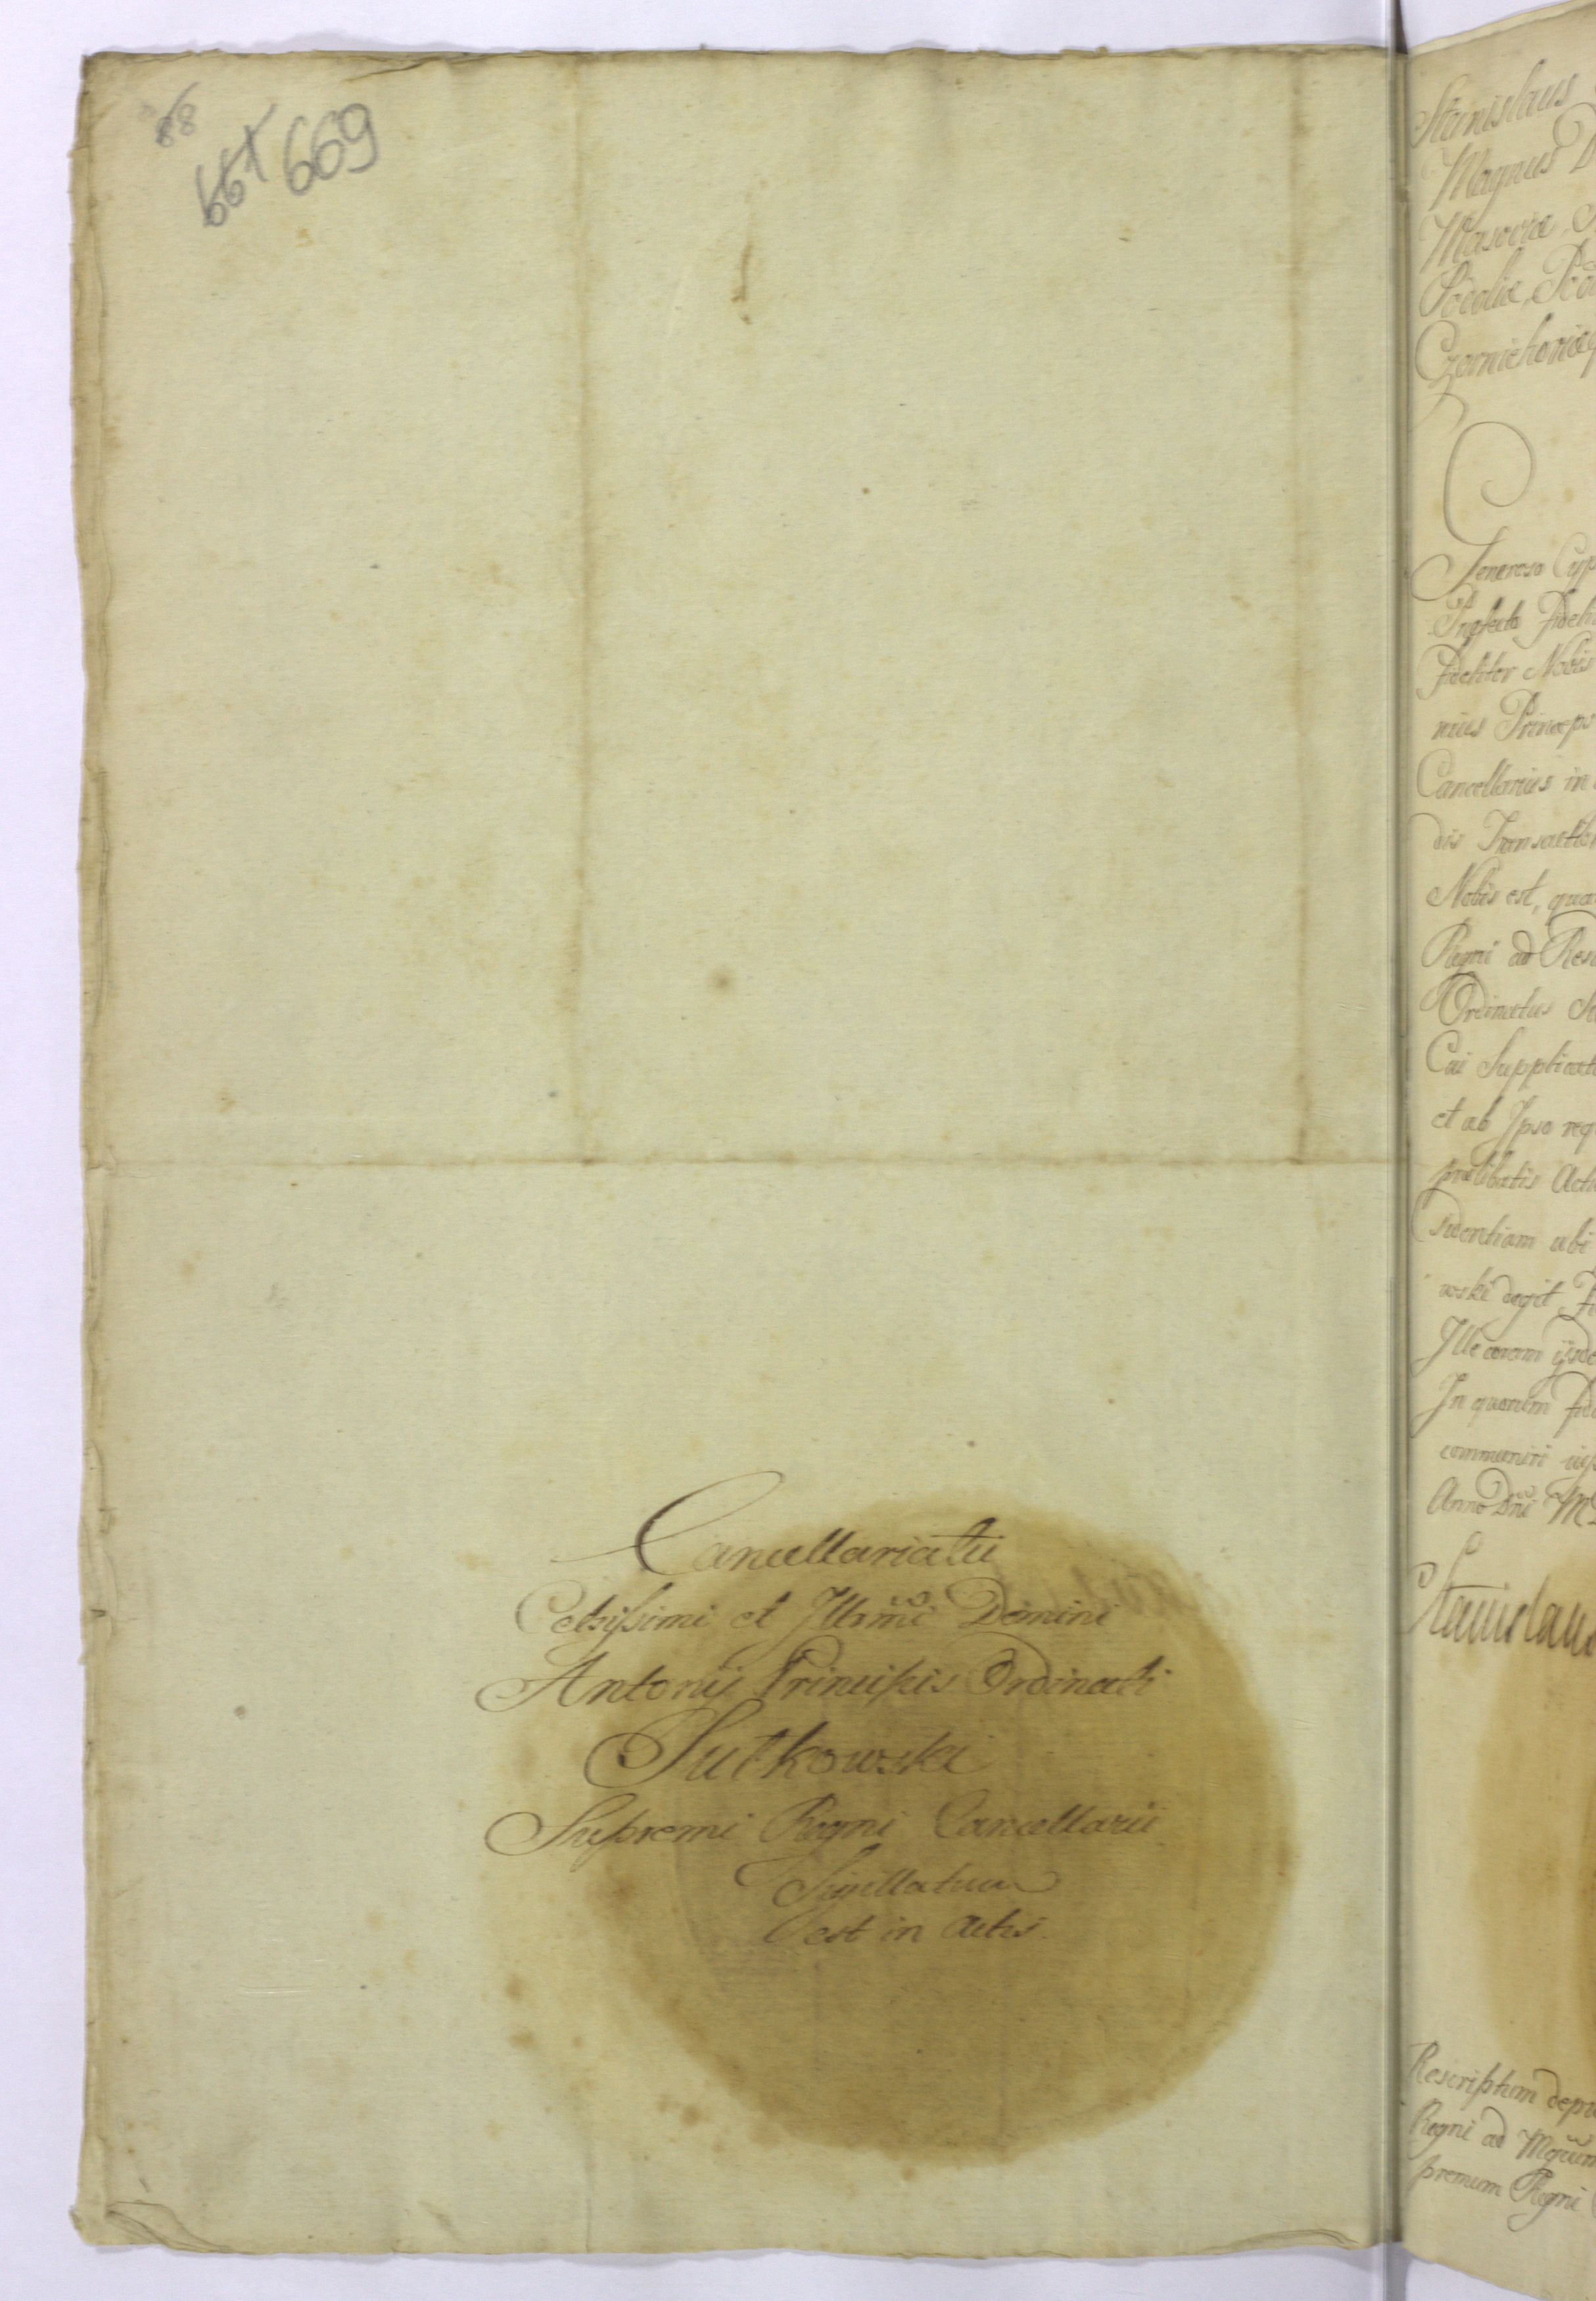 88
669
Cancellariatu
Celsissimi et Illrmi Domini
Antonij Principis Ordinati
Sułkowski
Supremi Regni Cancellarii
Sigillatum
est in Actis.
Stanislaus
Magnus D
Masoviæ,
Podoliæ,
Czernichoviæq
Generoso Cyp
Præfecto Fideli
Fideliter Nobis
nius Princeps
Cancellarius in
dis Transactio
Nobis est, qua
Regni ad Resi
Ordinatus
Cui Supplicat
et ab Ipso req
prælibatis Actis
sidentiam ubi
wski degit
Ille coram ijsde
In quorum Fide
communiri
Anno Dni M
Stanislaus
Rescriptum
Regni ad
premum Regni